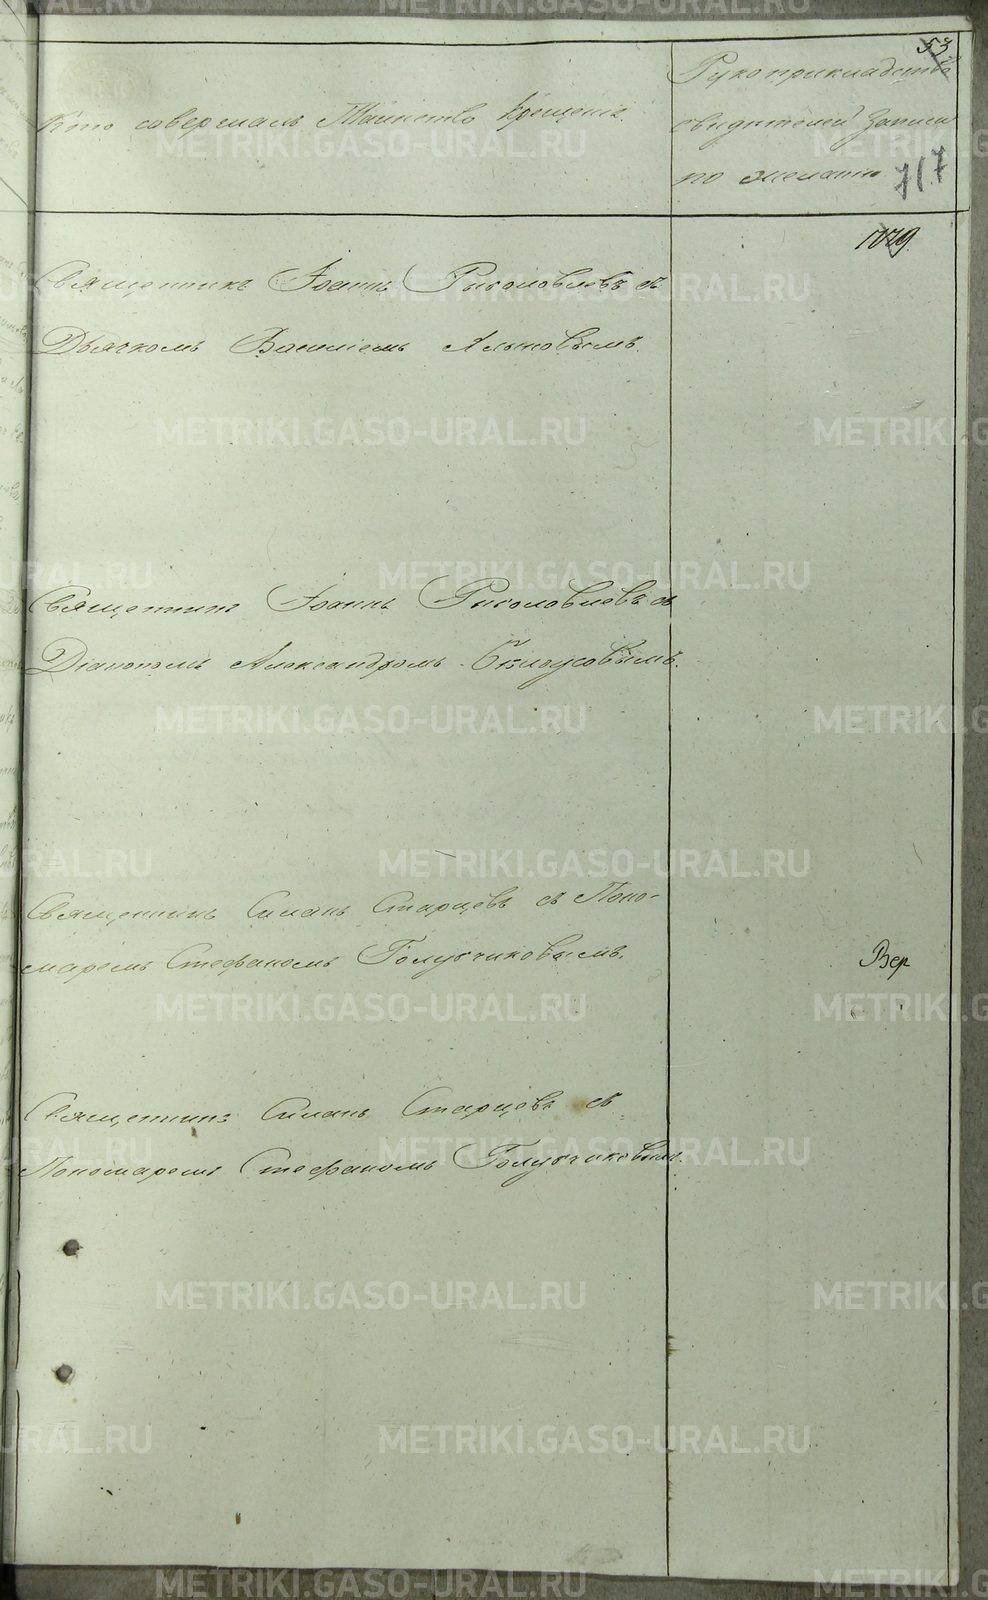 53
Рукоприкладство
Кто совершалъ Таинство Крещенія.
свидѣтелей Записи
по желанію
717
1029.
Священникъ Іоаннъ Рыболовлевъ съ
Дьячкомъ Василіемъ
Священникъ Іоаннъ Рыболовлевъ съ
Діакономъ Александромъ Бѣлоусовымъ.
Священникъ Симонъ Старцевъ съ Поно-
маремъ Стефаномъ Голубчиковымъ.
Вер
Священникъ Симонъ Старцевъ съ
Пономаремъ Стефаномъ Голубчиковымъ.
METRIKI.GASO-URAL.RU